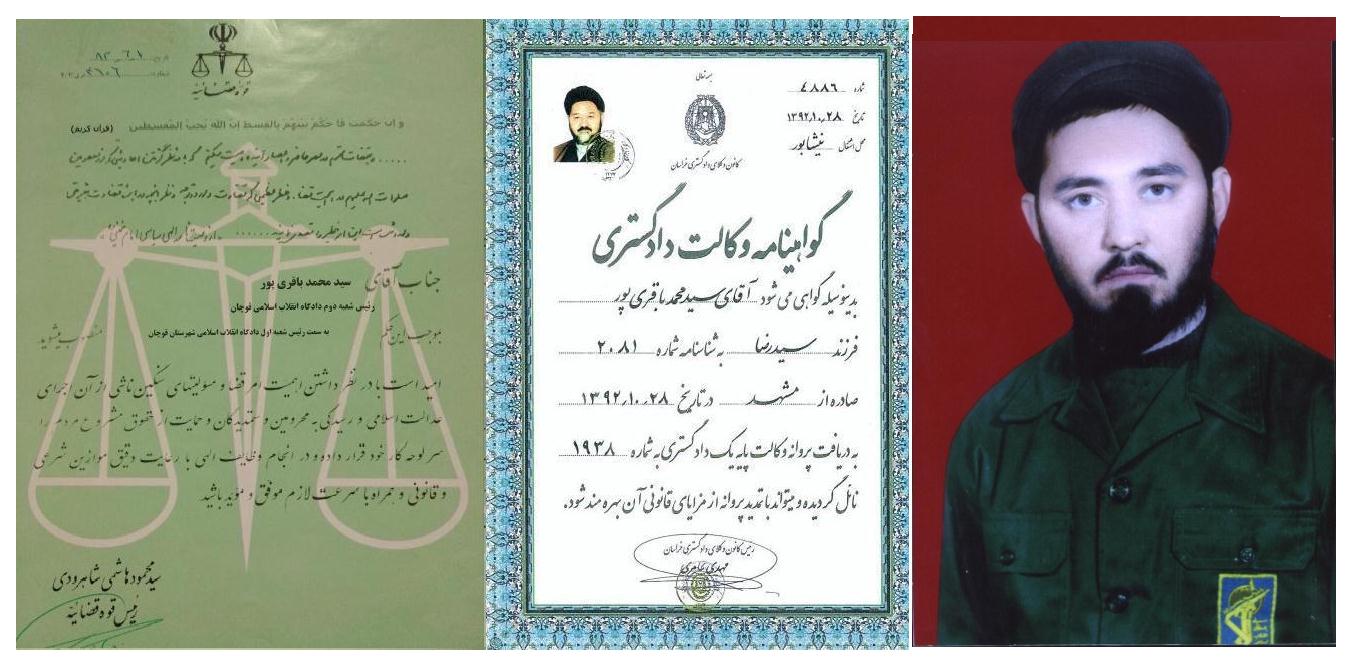 تاریخ ۸۲٫۶٫۱
شماره
قوه قضائیه
و ان حکمت فاحکم بینهم بالقسط ان الله یحب المقسطین (قرآن کریم)
جناب آقای سید محمد باقری پور
رئیس شعبه دوم دادگاه انقلاب اسلامی قوچان
بموجب این حکم به سمت رئیس شعبه اول دادگاه انقلاب اسلامی شهرستان قوچان منصوب میشوید
امید است با در نظر داشتن اهمیت امر قضا و مسئولیتهای سنگین ناشی از آن اجرای
عدالت اسلامی و رسیدگی به محرومین و ستمدیدگان و حمایت از حقوق مشروع مردم را
سرلوحه کار خود قرار داده و در انجام وظائف الهی با رعایت دقیق موازین شرعی
و قانونی و همراه با سرعت لازم موفق و مؤید باشید
سید محمود هاشمی شاهرودی
رئیس قوه قضائیه
بسمه تعالی
شماره ۴۸۸۶
تاریخ ۱۳۹۲٫۱۰٫۲۸
محل اشتغال نیشابور
کانون وکلای دادگستری خراسان
گواهینامه وکالت دادگستری
بدینوسیله گواهی می شود آقای سیدمحمد باقری پور
فرزند سیدرضا به شناسنامه شماره ۲۰۸۱
صادره از مشهد در تاریخ ۱۳۹۲٫۱۰٫۲۸
به دریافت پروانه وکالت پایه یک دادگستری به شماره ۱۹۳۸
نائل گردیده و میتواند با تمدید پروانه از مزایای قانونی آن بهره مند شود.
رئیس کانون وکلای دادگستری خراسان